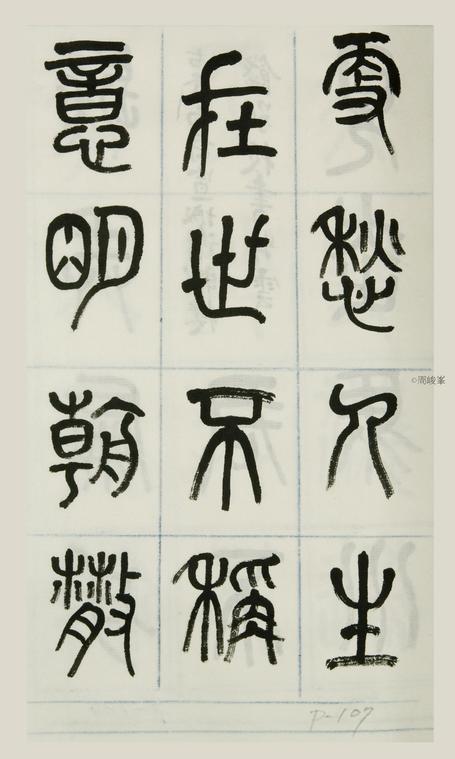 更愁人生
在世不稱
意明朝散
©周峻峯
P-107